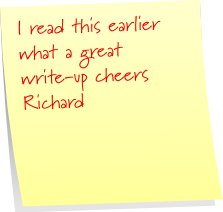 I read this earlier
what a great
write-up cheers
Richard